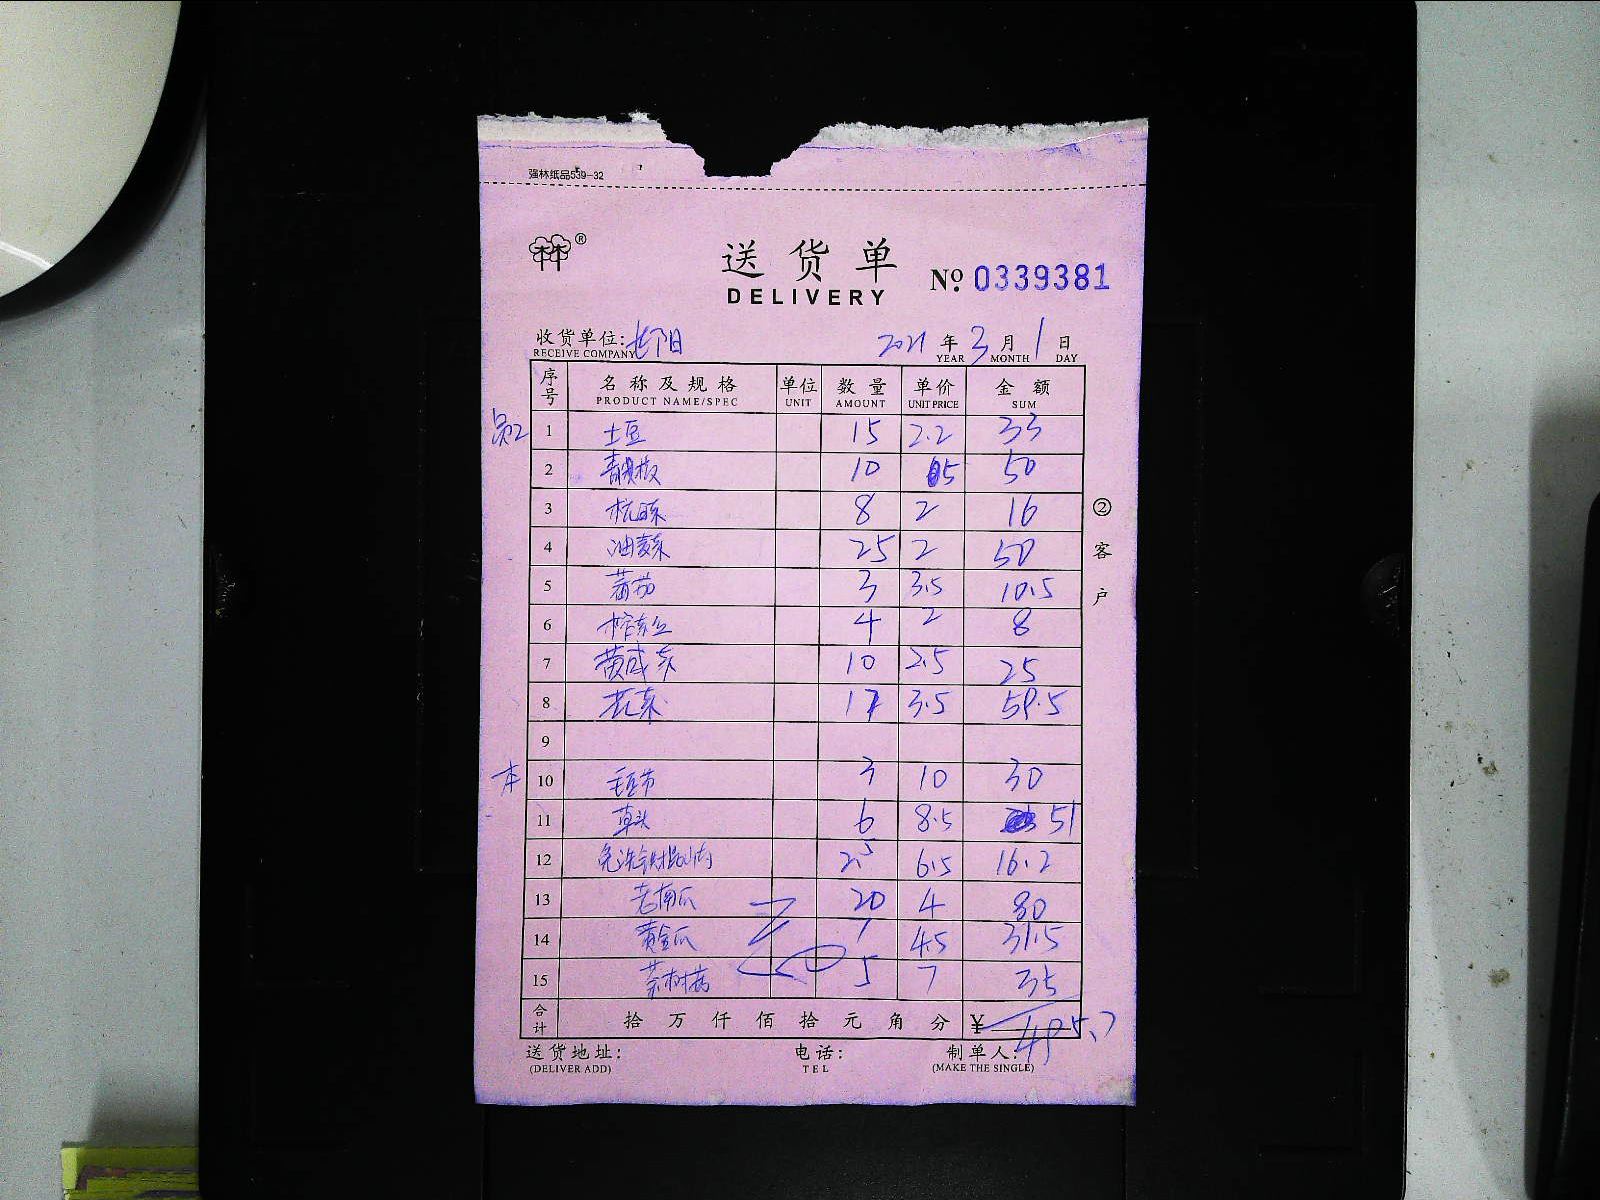 强林纸品539-32
林林®
送货单
DELIVERY
№ 0339381
收货单位: 长阳 2021 年 3 月 1 日
RECEIVE COMPANY YEAR MONTH DAY
序号 名称及规格 单位 数量 单价 金额
PRODUCT NAME/SPEC UNIT AMOUNT UNIT PRICE SUM
1 土豆 15 2.2 33
2 10 5 50
3 8 2 16
4 油麦菜 25 2 50
5 蕃茄 3 3.5 10.5
6 4 2 8
7 10 2.5 25
8 17 3.5 59.5
9
本 10 毛豆节 3 10 30
11 草头 6 8.5 51
12 2.5 6.5 16.2
13 老南瓜 20 4 80
14 黄金瓜 7 4.5 31.5
15 茶树菇 5 7 35
合计 拾 万 仟 佰 拾 元 角 分 ¥ 495.7
②客户
送货地址: 电话: 制单人:
(DELIVER ADD) TEL (MAKE THE SINGLE)